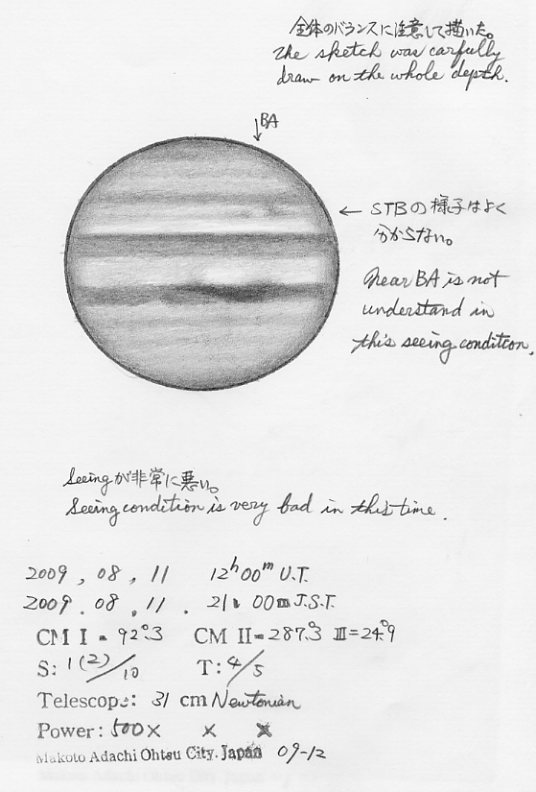 全体のバランスに注意して描いた。
the sketch was carfully
draw on the whole depth.
BA
← STBの様子はよく
分からない。
near BA is not
understand in
this seeing condition.
Seeingが非常に悪い。
Seeing condition is very bad in this time.
2009, 08, 11 12h00m U.T.
2009. 08. 11. 21h 00m J.S.T.
CM I = 92°.3 CM II = 287°.3 III = 24°.9
S: 1(2)/10 T: 4/5
Telescope: 31 cm Newtonian
Power: 500× × ×
Makoto Adachi Ohtsu City. Japan 09-12